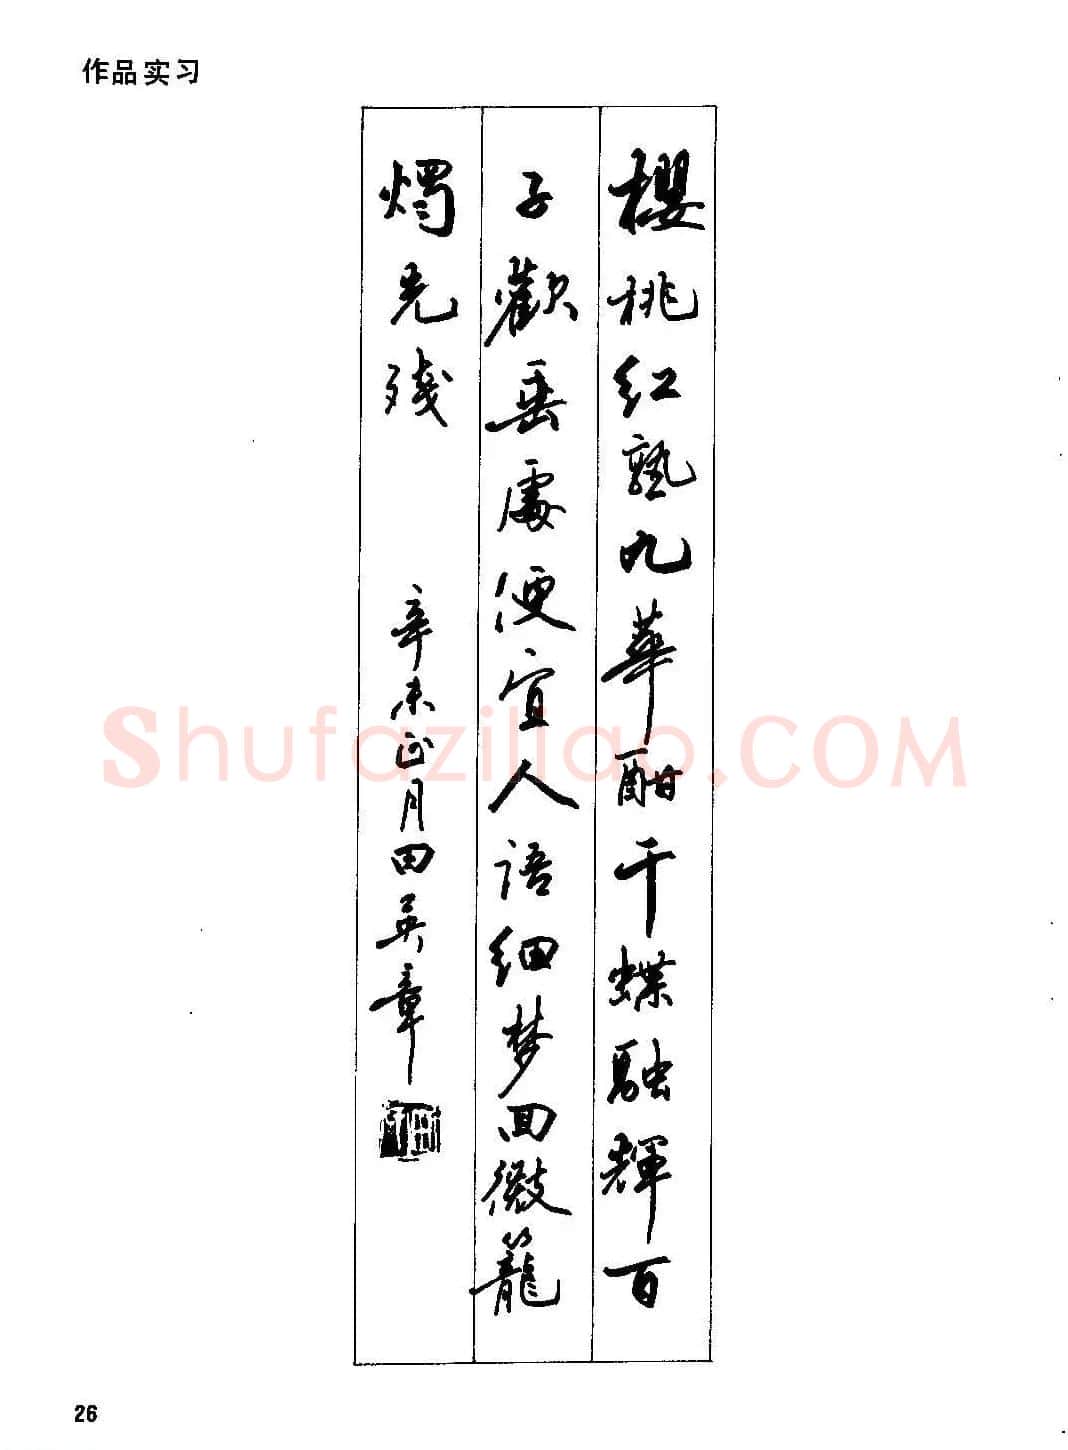 作品实习
櫻桃红熟九華酣千蝶融輝百
子歡垂處便宜人语细梦回微籠
烛光残
辛未正月田英章
Shufaziliao.COM
26